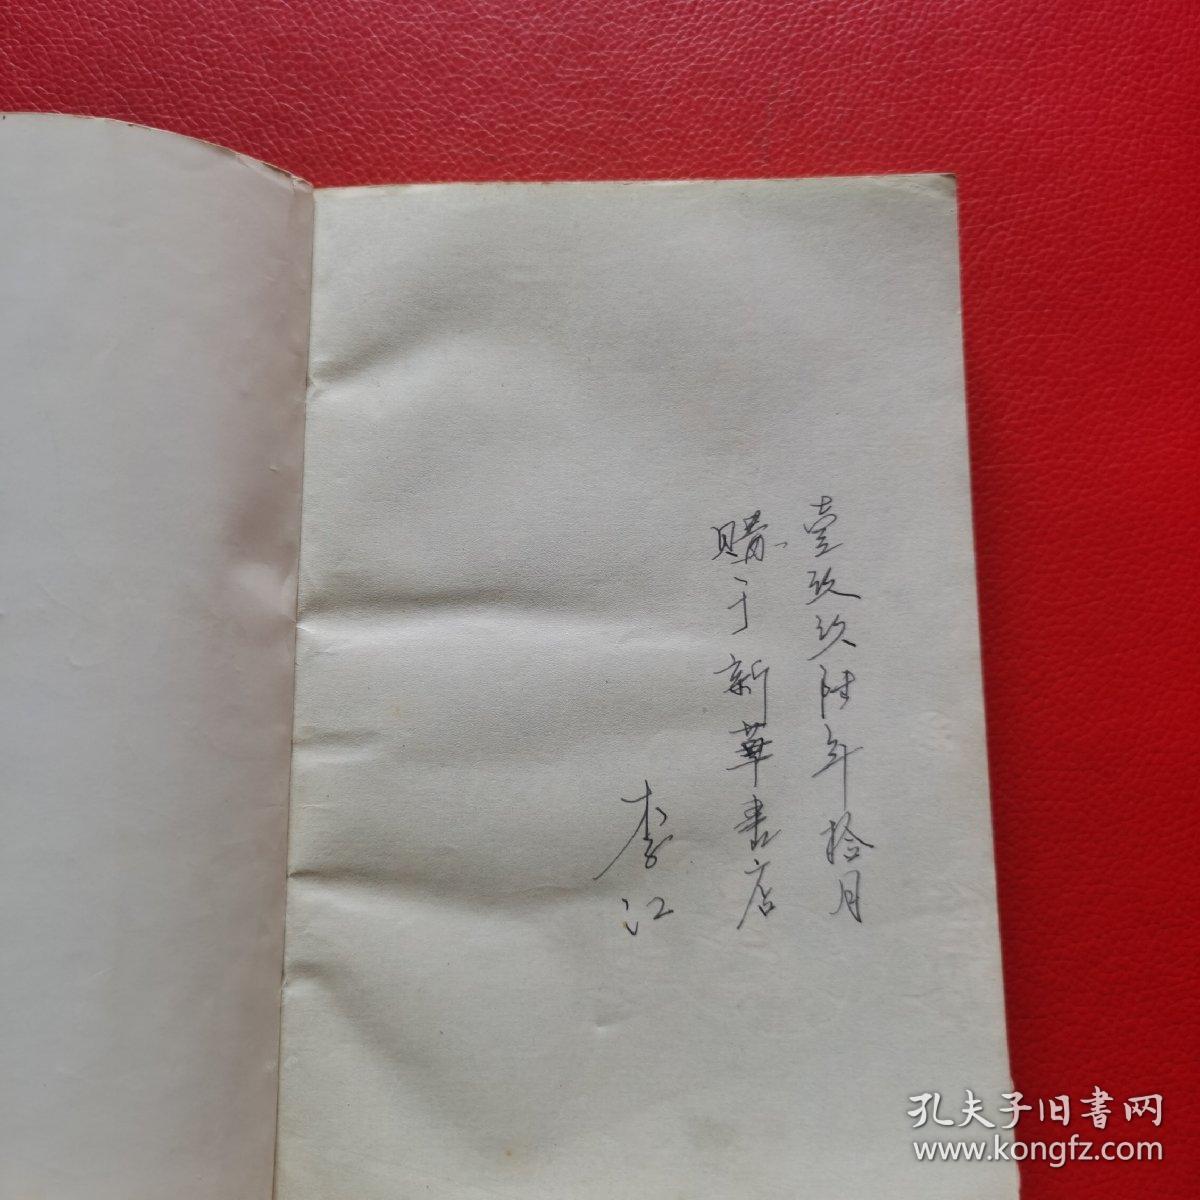 壹玖玖陆年拾月
購于新華書店
李江
孔夫子旧書网
www.kongfz.com